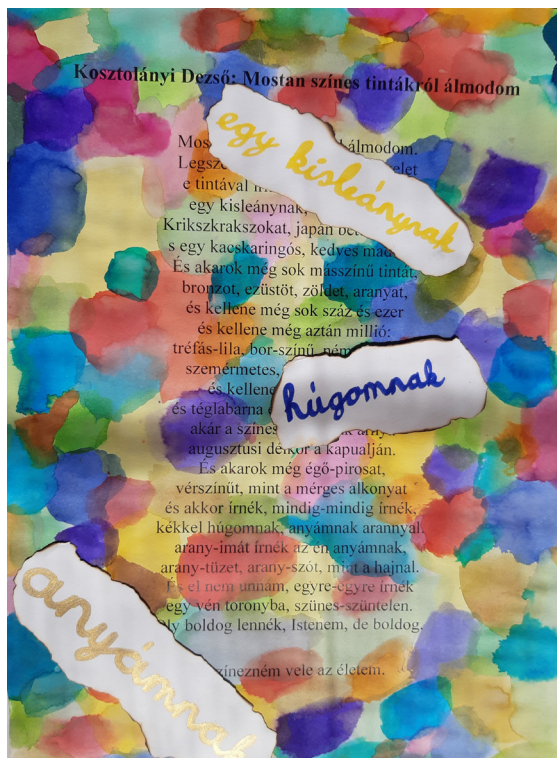 Kosztolányi Dezső: Mostan színes tintákról álmodom
egy kisleánynak
álmodom.
e tintával
egy kisleánynak,
Krikszkrakszokat, japán
s egy kacskaringós, kedves
És akarok még sok másszínű tintát,
bronzot, ezüstöt, zöldet, aranyat,
és kellene még sok száz és ezer
és kellene még aztán millió:
tréfás-lila, bor-színű,
szemérmetes,
húgomnak
és kellene
és téglabarna
akár a színes
augusztusi délkor a kapualján.
És akarok még égő-pirosat,
vérszínűt, mint a mérges alkonyat
és akkor írnék, mindig-mindig írnék,
kékkel húgomnak, anyámnak arannyal:
arany-imát írnék az én anyámnak,
arany-tüzet, arany-szót, mint a hajnal.
És el nem unnám, egyre-egyre írnék
egy vén toronyba, szünes-szüntelen.
Oly boldog lennék, Istenem, de boldog.
anyámnak
színezném vele az életem.